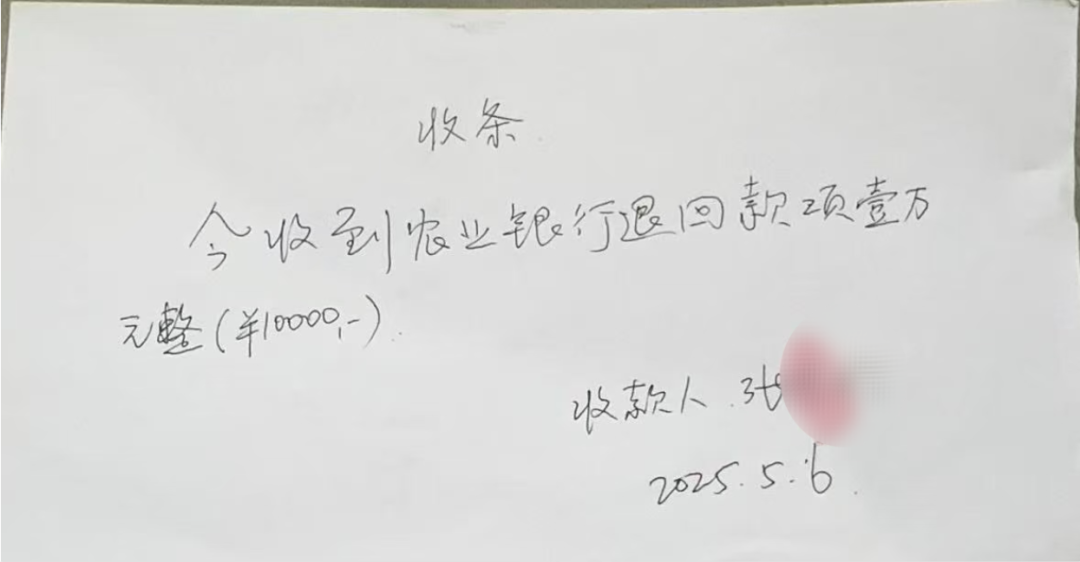 收条
今收到农业银行退回款项壹万
元整(¥10000,-).
收款人 张
2025.5.6.